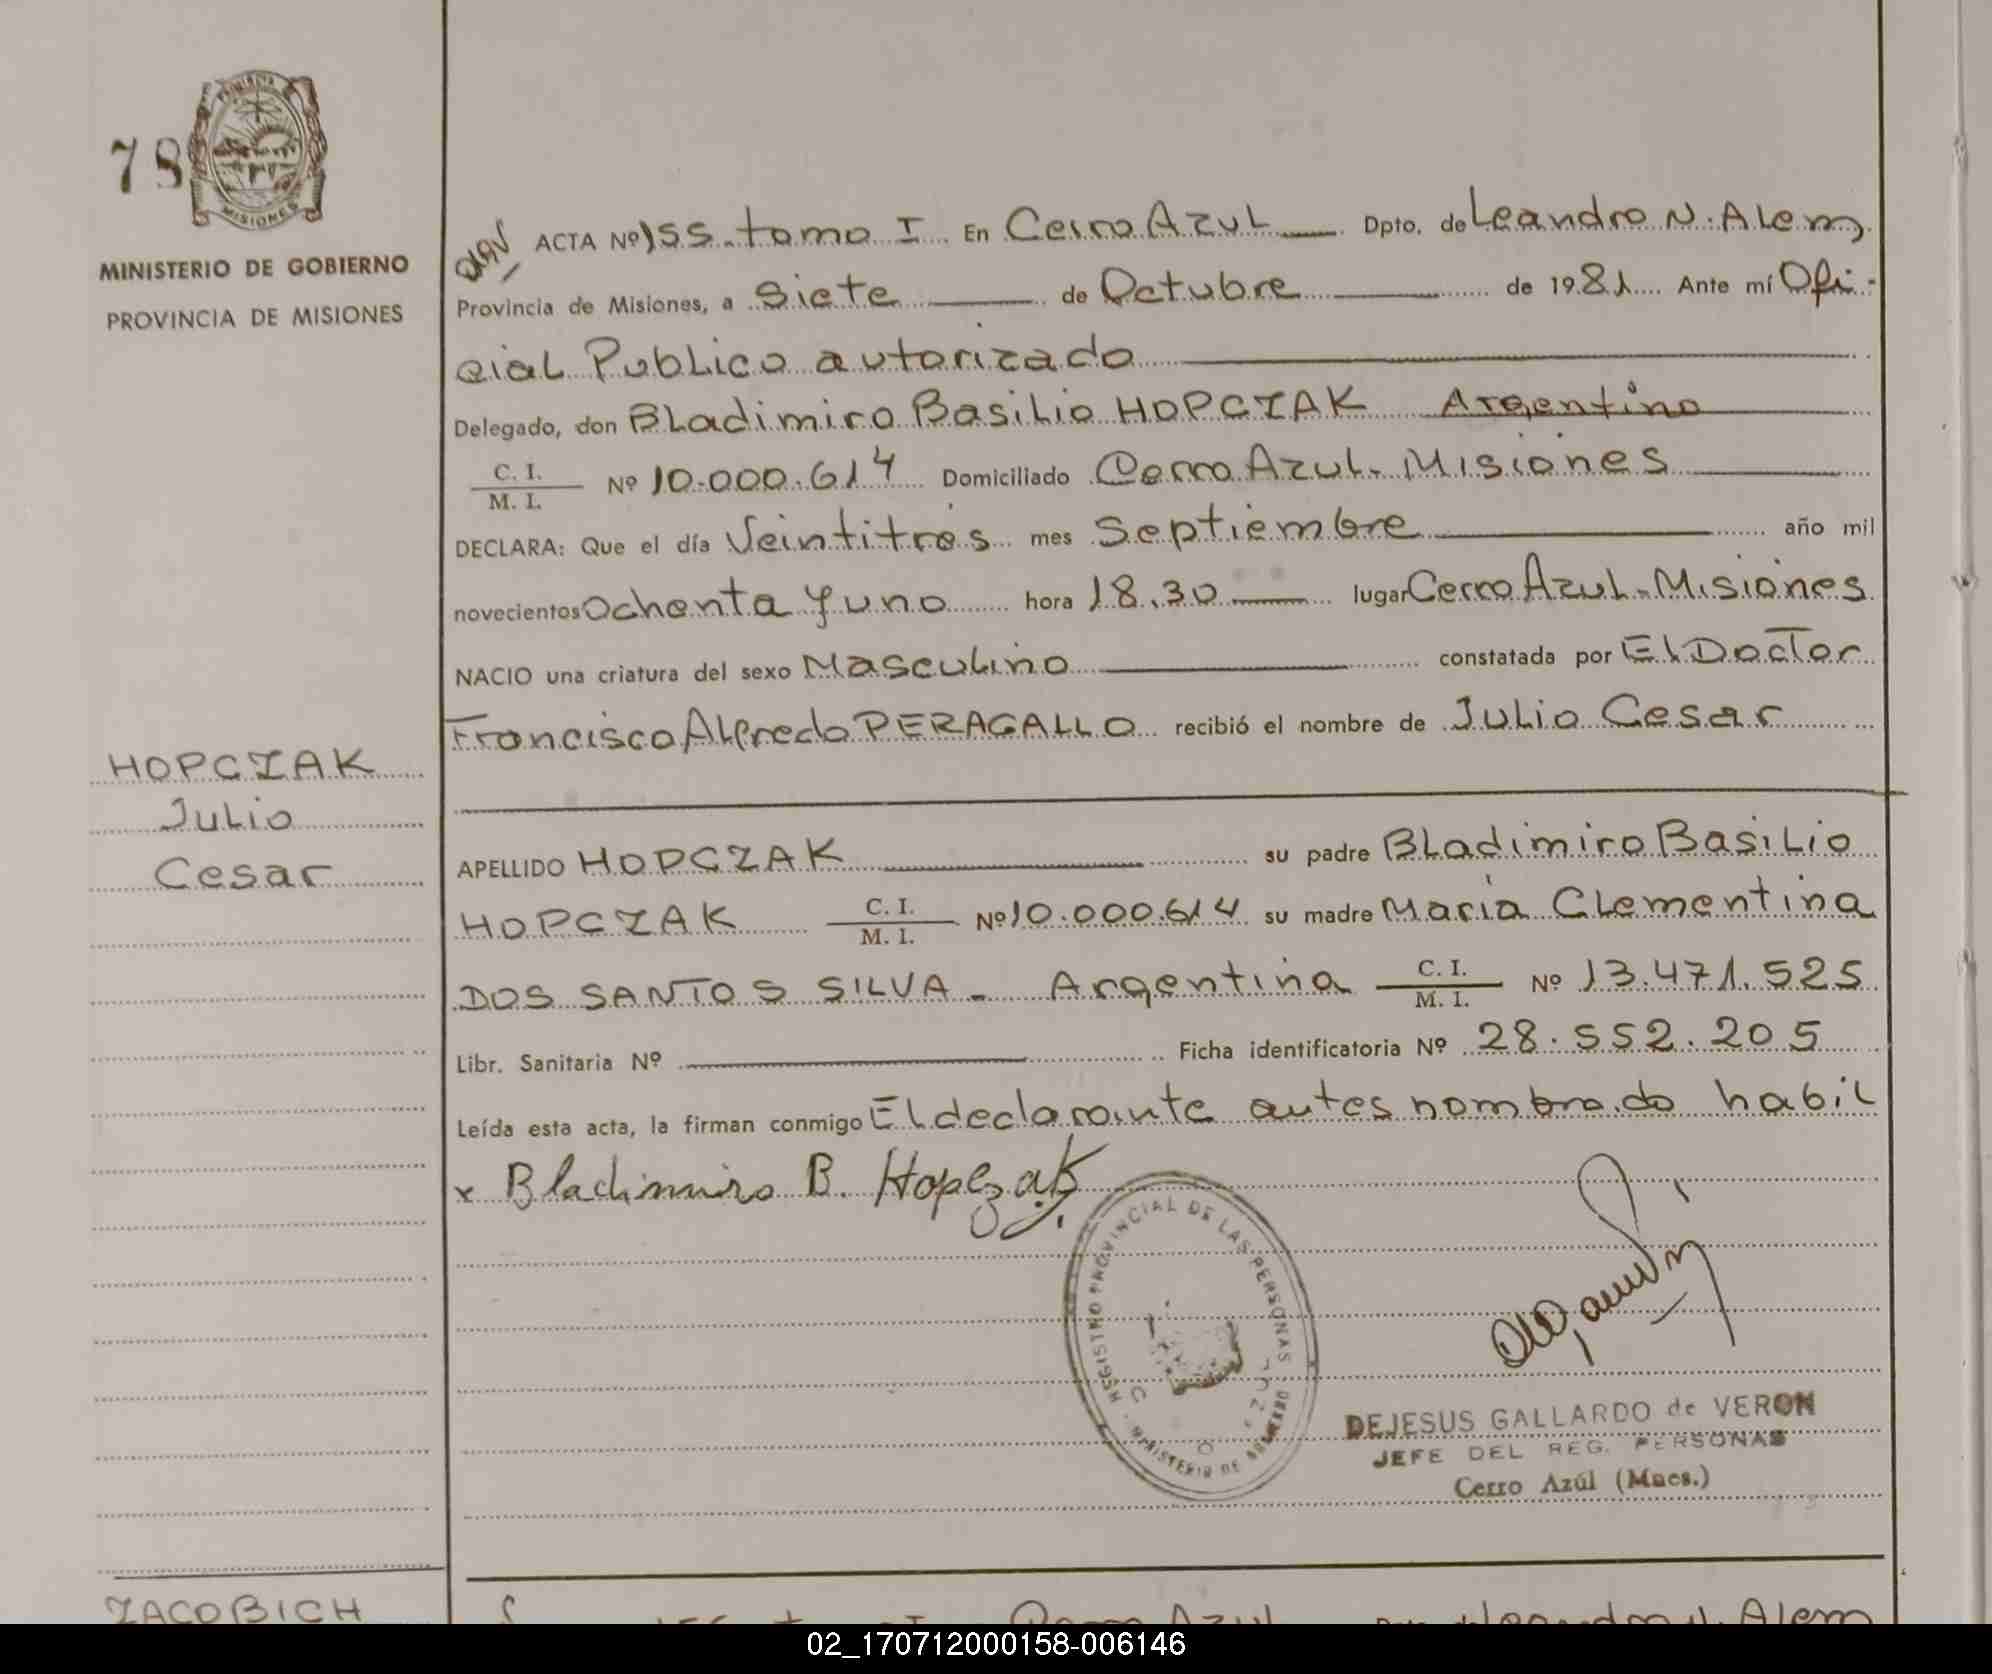 78
PROVINCIA DE
MISIONES
MINISTERIO DE GOBIERNO
PROVINCIA DE MISIONES
HOPCZAK
Julio
Cesar
ACTA Nº 155. tomo I En Cerro Azul Dpto. de Leandro N. Alem
Provincia de Misiones, a Siete de Octubre de 1981 Ante mí Ofi-
cial Publico autorizado
Delegado, don Bladimiro Basilio HOPCZAK Argentino
C. I.
M. I. Nº 10.000.614 Domiciliado Cerro Azul. Misiones
DECLARA: Que el día Veintitrés mes Septiembre año mil
novecientos Ochenta y uno hora 18.30 lugar Cerro Azul. Misiones
NACIO una criatura del sexo Masculino constatada por El Doctor
Francisco Alfredo PERAGALLO recibió el nombre de Julio Cesar
APELLIDO HOPCZAK su padre Bladimiro Basilio
HOPCZAK C. I. M. I. Nº 10.000.614 su madre Maria Clementina
DOS SANTOS SILVA - Argentina C. I. M. I. Nº 13.471.525
Libr. Sanitaria Nº Ficha identificatoria Nº 28.552.205
Leída esta acta, la firman conmigo El declarante antes nombrado habil
x Bladimiro B. Hopczak
REGISTRO PROVINCIAL DE LAS PERSONAS
MINISTERIO DE
DEJESUS GALLARDO de VERON
JEFE DEL REG. PERSONAS
Cerro Azúl (Mnes.)
ZACOBICH
02_170712000158-006146